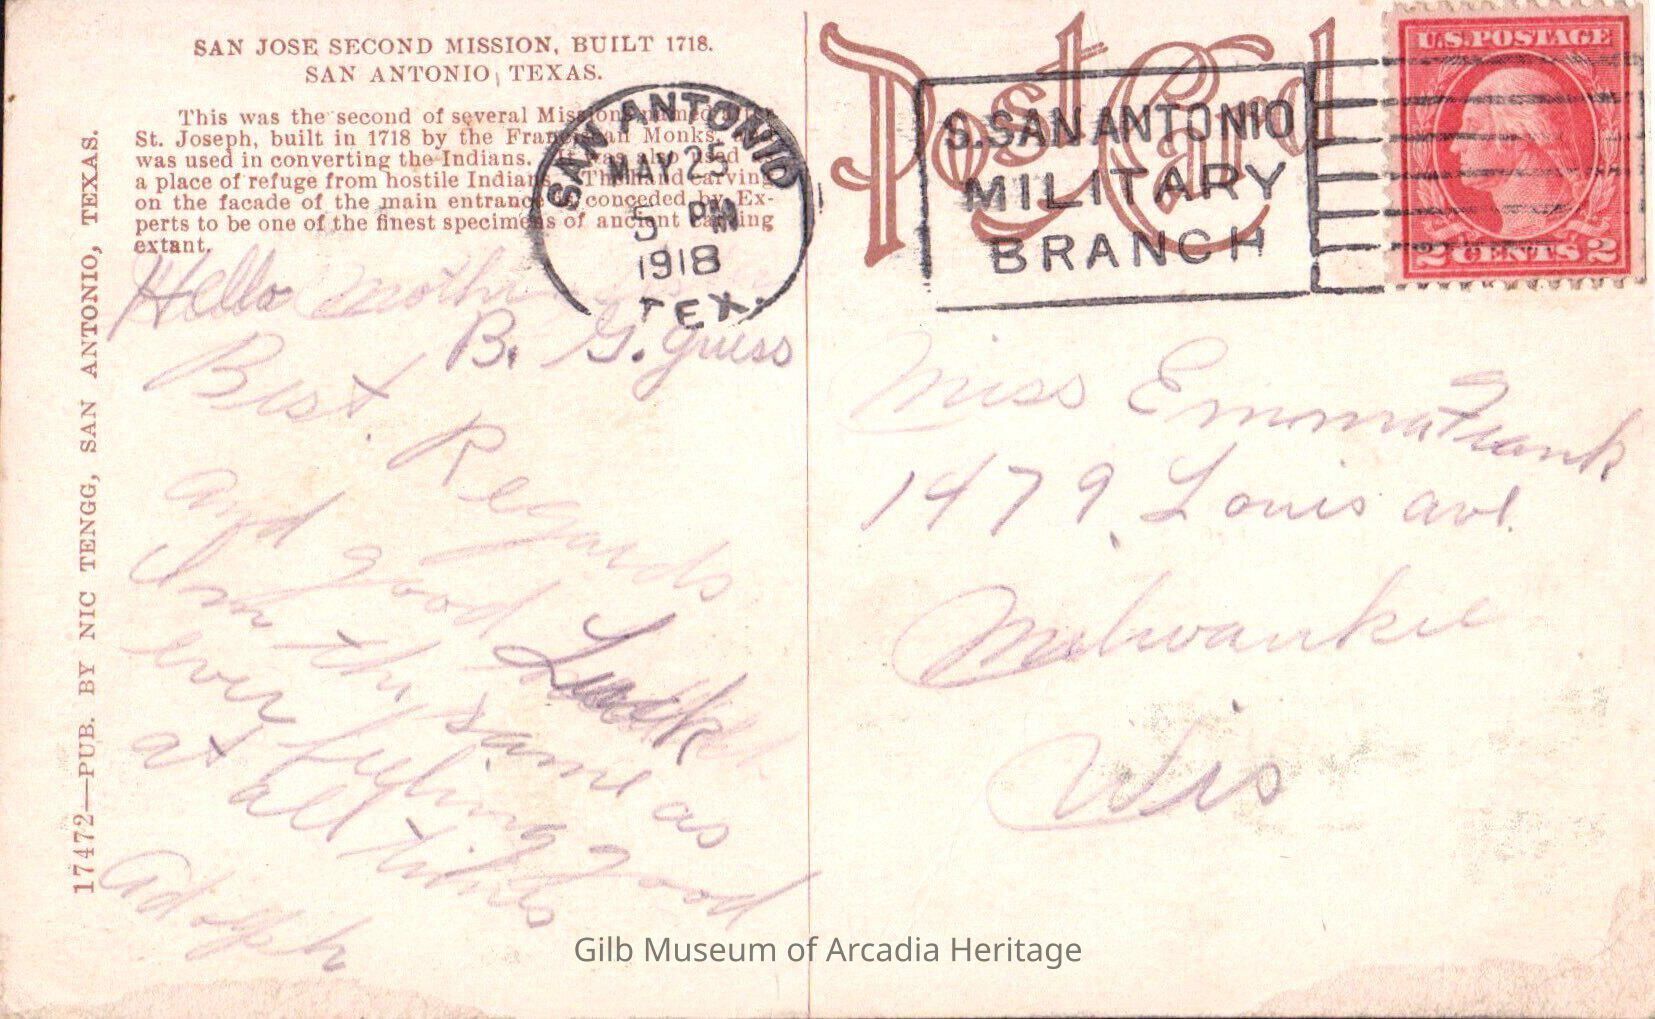 SAN JOSE SECOND MISSION, BUILT 1718.
SAN ANTONIO, TEXAS.
This was the second of several Missions named
St. Joseph, built in 1718 by the Franciscan Monks.
was used in converting the Indians. was also used
a place of refuge from hostile Indians. The hand carving
on the facade of the main entrance is conceded by Ex-
perts to be one of the finest specimens of ancient carving
extant.
17472—PUB. BY NIC TENGG, SAN ANTONIO, TEXAS.
Hello Mother
B. G. Guess
Best Regards
and good Luck
Im the same as
ever feeling good
at all times
Adolph
SAN ANTONIO
MAY 25
5 PM
1918
TEX.
Post Card
S. SAN ANTONIO
MILITARY
BRANCH
U.S. POSTAGE
2 CENTS 2
Miss Emma Frank
1479 Louis ave.
Milwaukee
Wis
Gilb Museum of Arcadia Heritage